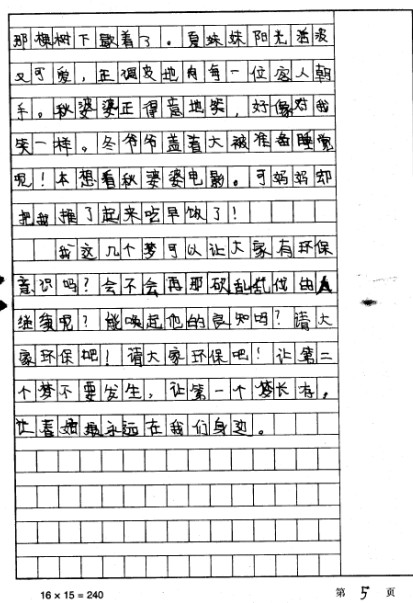 那棵树下歇着了。夏妹妹阳光活泼
又可爱，正调皮地向每一位客人朝
手。秋婆婆正得意地笑，好像对我
笑一样。冬爷爷盖着大被准备睡觉
呢！本想看秋婆婆电影。可妈妈却
把我揪了起来吃早饭了！
我这几个梦可以让大家有环保
意识吗？会不会再那砍乱伐的人
继续呢？能唤起他的良知吗？请大
家环保吧！请大家环保吧！让第二
个梦不要发生，让第一个梦长存，
让喜 永远在我们身边。
16 × 15 = 240
第 5 页